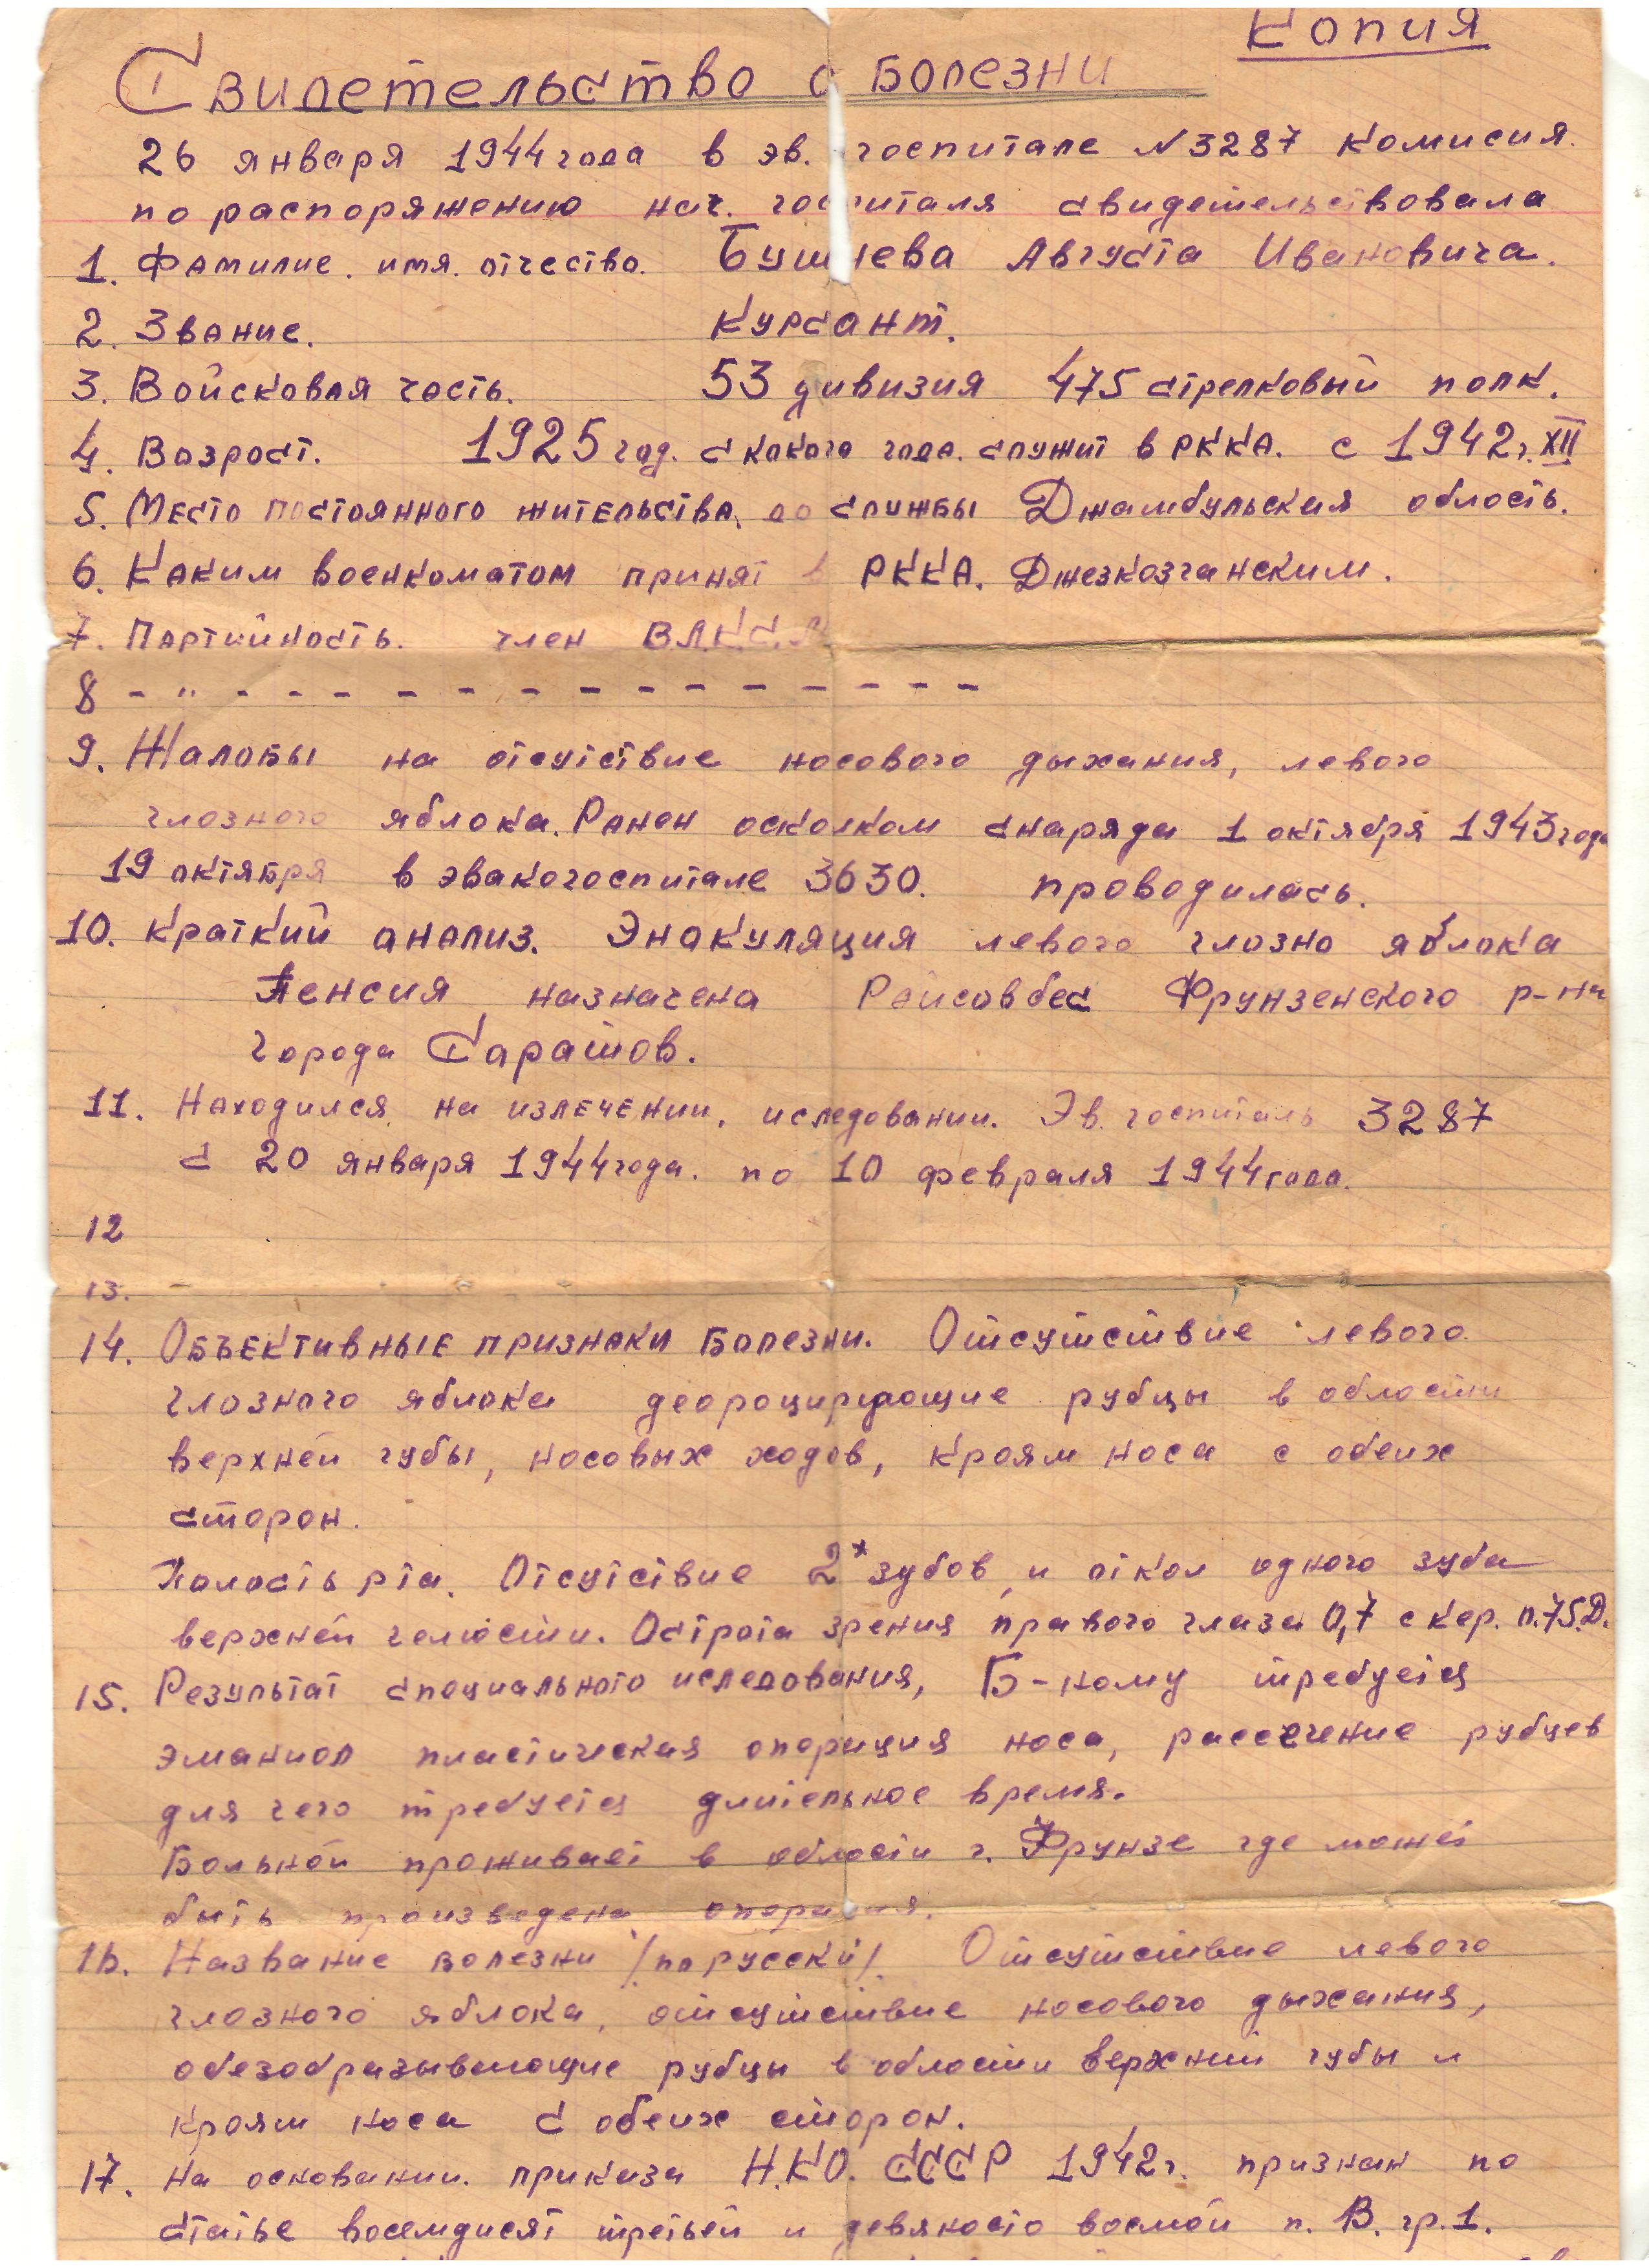 Копия
Свидетельство о болезни
26 января 1944 года в эв. госпитале №3287 комисия.
по распоряжению нач. госпиталя свидетельствовала
1. Фамилие. имя. отчество. Августа Ивановича.
2. Звание. Курсант.
3. Войсковая часть. 53 дивизия 475 стрелковый полк.
4. Возраст. 1925 год. с какого года служит в РККА. с 1942 г. XII
5. Место постоянного жительства, до службы Джамбульская область.
6. Каким военкоматом принят в РККА. Джезказганским.
7. Партийность. член ВЛКСМ
8 - " - - - - - - - - - - - - - -
9. Жалобы на отсутствие носового дыхания, левого
глазного яблока. Ранен осколком снаряда 1 октября 1943 года
19 октября в эвакогоспитале 3630. проводилась.
10. Краткий анализ. Энакуляция левого глазно яблока
Пенсия назначена Райсобес Фрунзенского р-на
города Саратов.
11. Находился на излечении, иследовании. Эв. госпиталь 3287
с 20 января 1944 года. по 10 февраля 1944 года.
12
13.
14. Объективные признаки болезни. Отсутствие левого
глазного яблока рубцы в области
верхней губы, носовых ходов, краям носа с обеих
сторон.
Полость рта. Отсутствие 2х зубов и откол одного зуба
верхней челюсти. Острота зрения правого глаза 0,7 с кор. п. 75.Д.
15. Результат специального иследования, Б-ному требуется
пластическая операция носа, рассечение рубцев
для чего требуется длительное время.
Больной проживает в области г. Фрунзе где может
быть произведена операция.
16. Название болезни /по русски/ Отсутствие левого
глазного яблока, отсутствие носового дыхания,
обезображивающие рубцы в области верхний губы и
краям носа с обеих сторон.
17. На основании. приказа Н.К.О. СССР 1942 г. признан по
статье восемдисят третьей и девяносто восмой п. В. гр. 1.